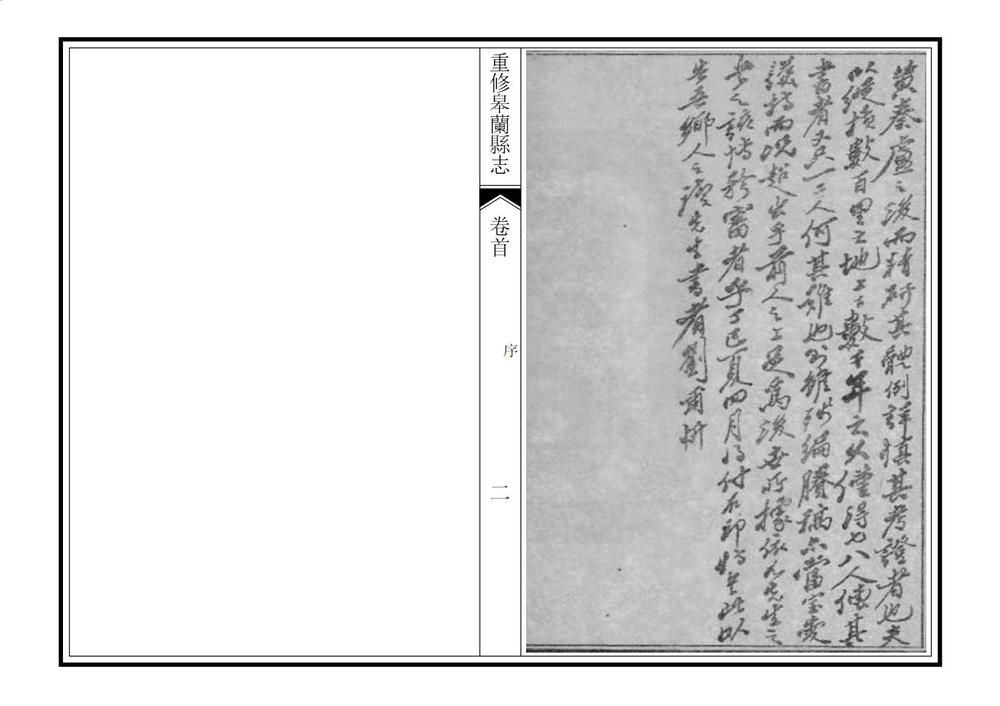 黄秦盧之後而精研其體例詳慎其考證者也夫
以縱橫數百里之地上下數千年之久僅得七八人傳其
書者又只一二人何其難也則雖殘編賸稿亦當寶愛
護持而況超出乎前人之上足爲後世所據依如先生之
書之該博矜審者乎丁巳夏四月將付石印特書此以
告吾鄉人之讀先生書者劉爾炘
重修皋蘭縣志
卷首
序
二